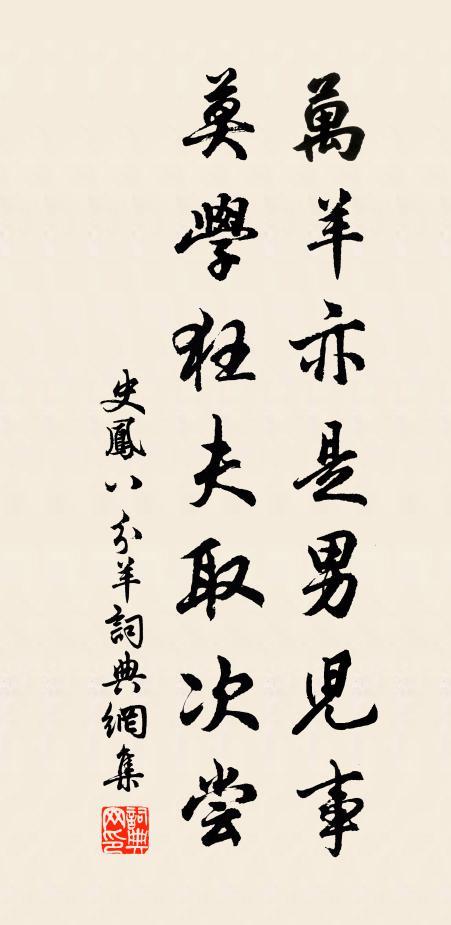 萬羊亦是男児事
莫學狂夫取次尝
史鳳八分羊詞典網集
詞典網印